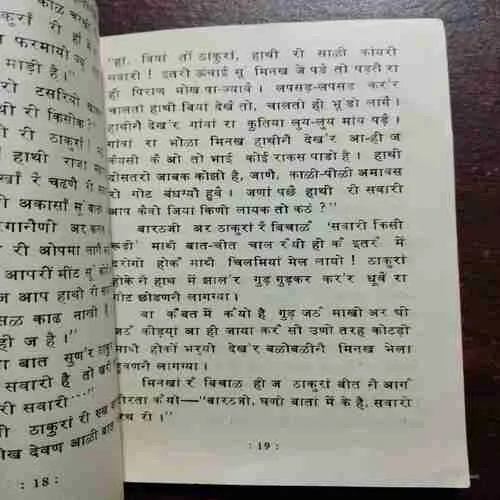 काळ करको
ठाकुरां री हां में
फरमायो ज्यूं
माड़ो है।"
रो टसरियो
हाथी री किसोक ?"
री ठाकुरां !
हाथी राजा
रै चढणै रो
अकासाँ सू
अर
री ओपमा लागै
आपरीं मींट सूं
ज आप हाथी रो
काढ नाखी !
ही ज है।"
बात सुण'र ठाकुरां
सवारी है तो
सवारी···"
ठाकुरां री
देवण आळी बात
: 18 :
"हां, बियां तो ठाकुरां, हाथी री साळी कांयरी
सवारी ! इतरी ऊंचाई सू मिनख जे पड़े तो पड़तै रा
ही पिराण मोख पा-ज्यावै। लपसड़-लपसड़ कर'र
चालता हाथी बियां देखै तो, चालतो ही भूंडो लागै।
हाथीनै देख'र गांवां रा कुतिया लुय-लुय मांय पड़ै।
गांवां रा भोळा मिनख हाथीनै देख'र आ-ही ज
कैयसी कै ओ तो भाई कोई राकस पाडो है। हाथी
जाबक काळो है, जाणै, काळी-पीळी अमावस
रो गोट बंधग्यो हुवै। जणां पछै हाथी री सवारी
आप कैवो जियां किणी लायक तो कठै ?"
बारठजी अर ठाकुरां रै बिचाळै 'सवारी किसी
रूडी' माथै बात-चीत चाल रैयी ही कै इतरै में
दरोगो होकै माथै चिलमियां मेल लायो ! ठाकुरां
होकै नै हाथ में झाल'र गुड़गुड़कर कर'र धूंवै रा
गोट छोडणनै लागग्या।
बा कैवत में कैयो है गुड़ जठै माखी अर घी
जठै कीड़्यां आ ही जाया करै सो उणी तरह कोटड़ी
माथै होकों भर्‌यो देख'र बळोबळीनै मिनख भेळा
हुवणनै लागग्या।
मिनखां रै बिचाळै ही ज ठाकुरां बात नै आगै
कैयो—"बारठजी, घणी बातां में के है, सवारी
री।"
: 19 :